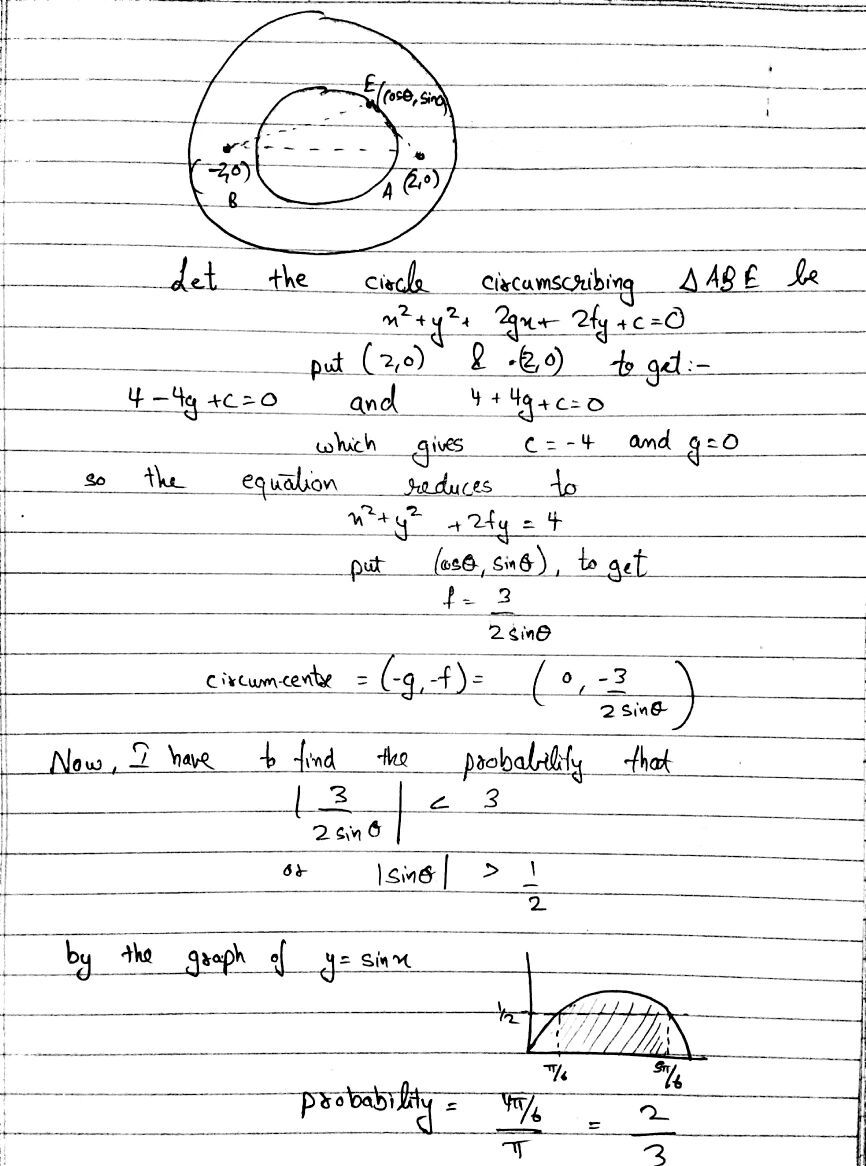 E (cosθ, sinθ)
(-2,0)
B
A (2,0)
Let the circle circumscribing ΔABE be
x²+y²+ 2gx+ 2fy+c=0
put (2,0) & -(2,0) to get:-
4-4g+c=0 and 4+4g+c=0
which gives c=-4 and g=0
so the equation reduces to
x²+y² +2fy = 4
put (cosθ, sinθ), to get
f = 3/2sinθ
circum-centre = (-g,-f) = (0, -3/2sinθ)
Now, I have to find the probability that
|3/2sinθ| < 3
or |sinθ| > 1/2
by the graph of y=sinx
1/2
π/6 5π/6
probability = 4π/6/π = 2/3